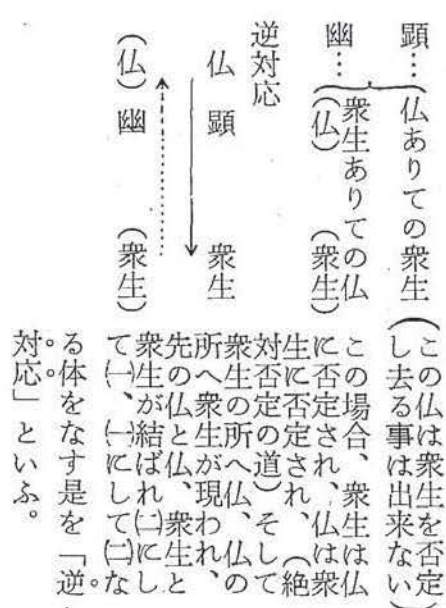 顕…仏ありての衆生（この仏は衆生を否定
し去る事は出来ない）
幽…衆生ありての仏
（仏）　（衆生）
この場合、衆生は仏
に否定され、仏は衆
生に否定され、（絶
対否定の道）そして
衆生の所へ仏、仏の
所へ衆生が現われ、
先の仏と仏、衆生と
衆生が結ばれ㈡にし
て㈠、㈠にして㈡な
る体をなす是を「逆
対応」といふ。
逆対応
仏　顕　衆生
（仏）幽　（衆生）